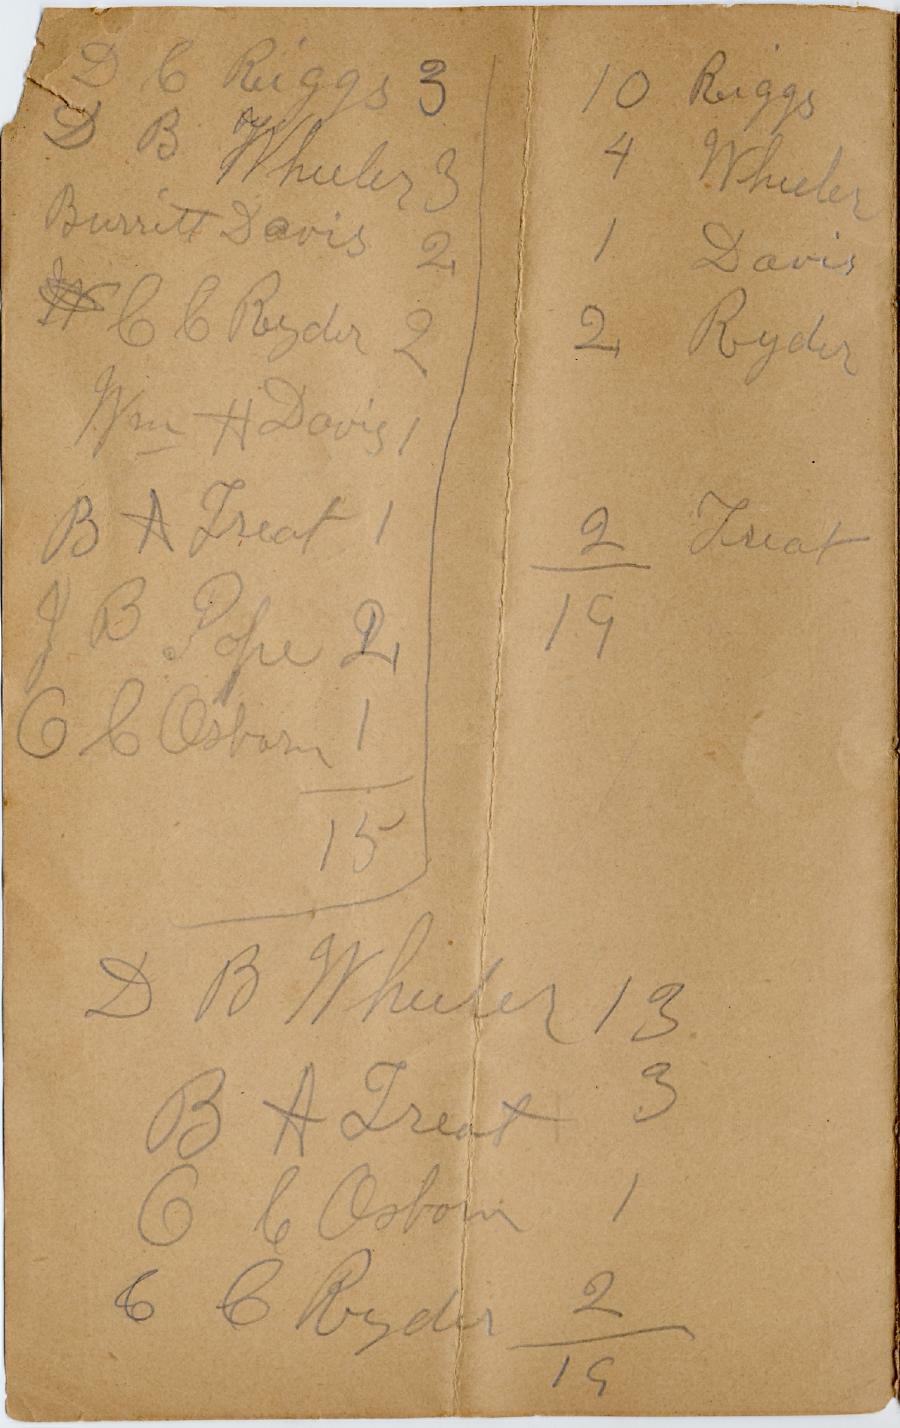 D C Riggs 3
D B Wheeler 3
Burritt Davis 2
C C Ryder 2
Wm H Davis 1
B A Treat 1
J B Pope 2
O C Osborn 1
15
10 Riggs
4 Wheeler
1 Davis
2 Ryder
2 Treat
19
D B Wheeler 13
B A Treat 3
O C Osborn 1
C C Ryder 2
19